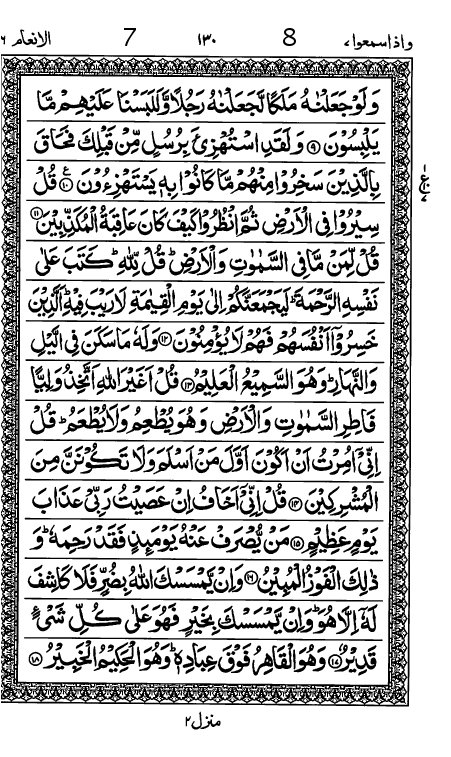 واذاسمعوا، 8 ١٣٠ 7 الانعام ٦
وَلَوْ جَعَلْنٰهُ مَلَكًا لَّجَعَلْنٰهُ رَجُلًا وَّلَلَبَسْنَا عَلَيْهِمْ مَّا
يَلْبِسُوْنَ ﴿٩﴾ وَلَقَدِ اسْتُهْزِئَ بِرُسُلٍ مِّنْ قَبْلِكَ فَحَاقَ
بِالَّذِيْنَ سَخِرُوْا مِنْهُمْ مَّا كَانُوْا بِهٖ يَسْتَهْزِءُوْنَ ﴿١٠﴾ قُلْ
سِيْرُوْا فِي الْاَرْضِ ثُمَّ انْظُرُوْا كَيْفَ كَانَ عَاقِبَةُ الْمُكَذِّبِيْنَ ﴿١١﴾
قُلْ لِّمَنْ مَّا فِي السَّمٰوٰتِ وَالْاَرْضِ ؕ قُلْ لِّلّٰهِ ؕ كَتَبَ عَلٰى
نَفْسِهِ الرَّحْمَةَ ؕ لَيَجْمَعَنَّكُمْ اِلٰى يَوْمِ الْقِيٰمَةِ لَا رَيْبَ فِيْهِ ؕ اَلَّذِيْنَ
خَسِرُوْۤا اَنْفُسَهُمْ فَهُمْ لَا يُؤْمِنُوْنَ ﴿١٢﴾ وَلَهٗ مَا سَكَنَ فِي الَّيْلِ
وَالنَّهَارِ ؕ وَهُوَ السَّمِيْعُ الْعَلِيْمُ ﴿١٣﴾ قُلْ اَغَيْرَ اللّٰهِ اَتَّخِذُ وَلِيًّا
فَاطِرِ السَّمٰوٰتِ وَالْاَرْضِ وَهُوَ يُطْعِمُ وَلَا يُطْعَمُ ؕ قُلْ
اِنِّيْۤ اُمِرْتُ اَنْ اَكُوْنَ اَوَّلَ مَنْ اَسْلَمَ وَلَا تَكُوْنَنَّ مِنَ
الْمُشْرِكِيْنَ ﴿١٤﴾ قُلْ اِنِّيْۤ اَخَافُ اِنْ عَصَيْتُ رَبِّيْ عَذَابَ
يَوْمٍ عَظِيْمٍ ﴿١٥﴾ مَنْ يُّصْرَفْ عَنْهُ يَوْمَئِذٍ فَقَدْ رَحِمَهٗ ؕ وَ
ذٰلِكَ الْفَوْزُ الْمُبِيْنُ ﴿١٦﴾ وَاِنْ يَّمْسَسْكَ اللّٰهُ بِضُرٍّ فَلَا كَاشِفَ
لَهٗۤ اِلَّا هُوَ ؕ وَاِنْ يَّمْسَسْكَ بِخَيْرٍ فَهُوَ عَلٰى كُلِّ شَيْءٍ
قَدِيْرٌ ﴿١٧﴾ وَهُوَ الْقَاهِرُ فَوْقَ عِبَادِهٖ ؕ وَهُوَ الْحَكِيْمُ الْخَبِيْرُ ﴿١٨﴾
منزل ٢